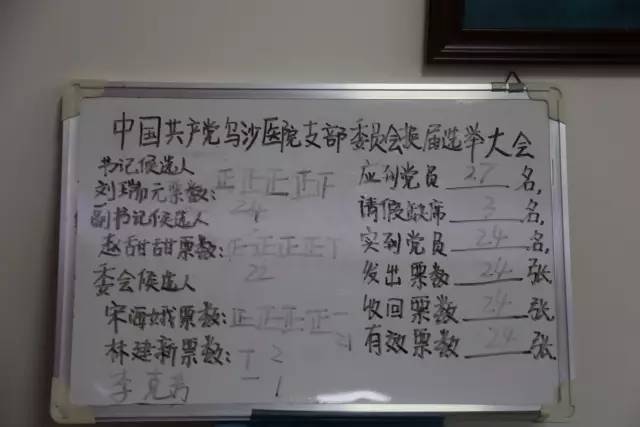 中国共产党乌沙医院支部委员会换届选举大会
书记候选人
刘瑞元票数：正正正正下
24
副书记候选人
赵甜甜票数：正正正正丁
22
委会候选人
宋海娥票数：正正正正一
21
林建新票数：丁 2
李克 一 1
应到党员 27 名，
请假缺席 3 名，
实到党员 24 名，
发出票数 24 张
收回票数 24 张
有效票数 24 张